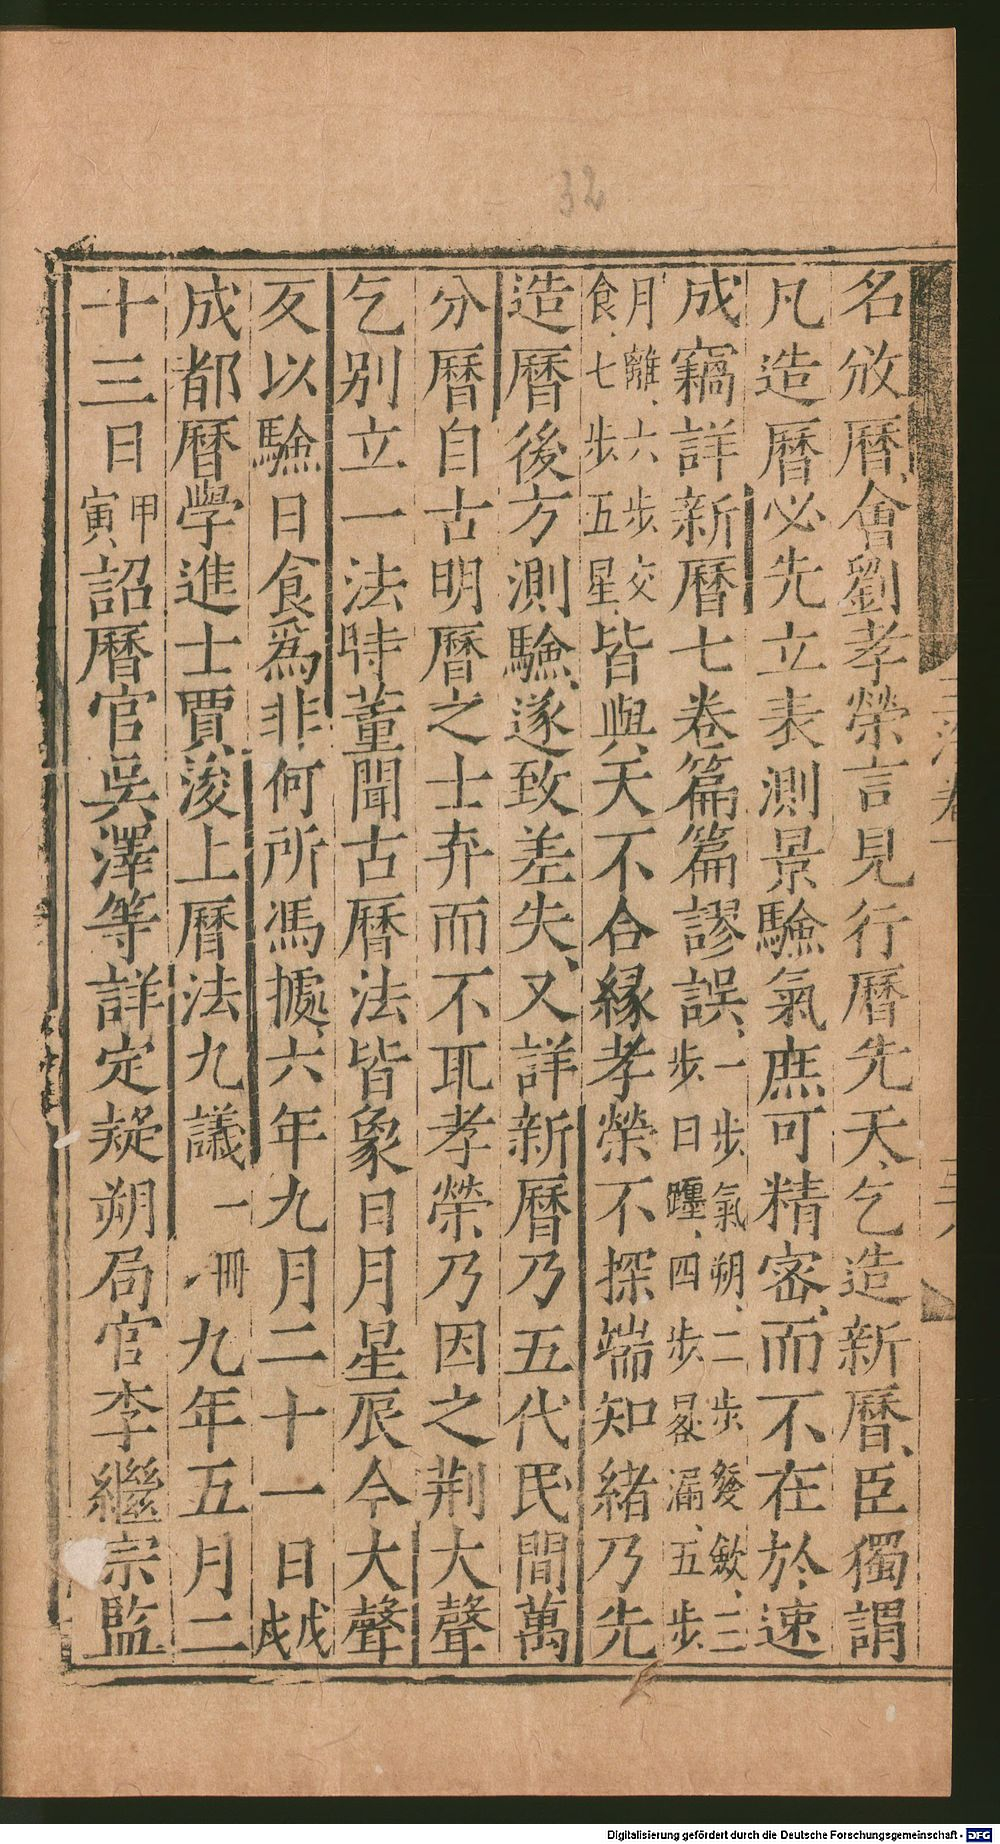 32
名攽曆、會劉孝榮言見行曆先天、乞造新曆、臣獨謂
凡造曆必先立表測景驗氣庶可精密、而不在於速
成竊詳新曆七卷篇篇謬誤、一步氣朔、二步發斂、三步日躔、四步晷漏、五步
月離、六步交食、七步五星、皆與天不合緣孝榮不探端知緒乃先
造曆後方測驗、遂致差失、又詳新曆乃五代民間萬
分曆自古明曆之士弃而不取孝榮乃因之荆大聲
乞别立一法時董聞古曆法皆象日月星辰今大聲
以驗日食爲非何所馮據、六年九月二十一日戊戌
成都曆學進士賈浚上曆法九議一冊九年五月二
十三日甲寅、詔曆官吳澤等詳定疑朔局官李繼宗監
三十八
Digitalisierung gefördert durch die Deutsche Forschungsgemeinschaft - DFG